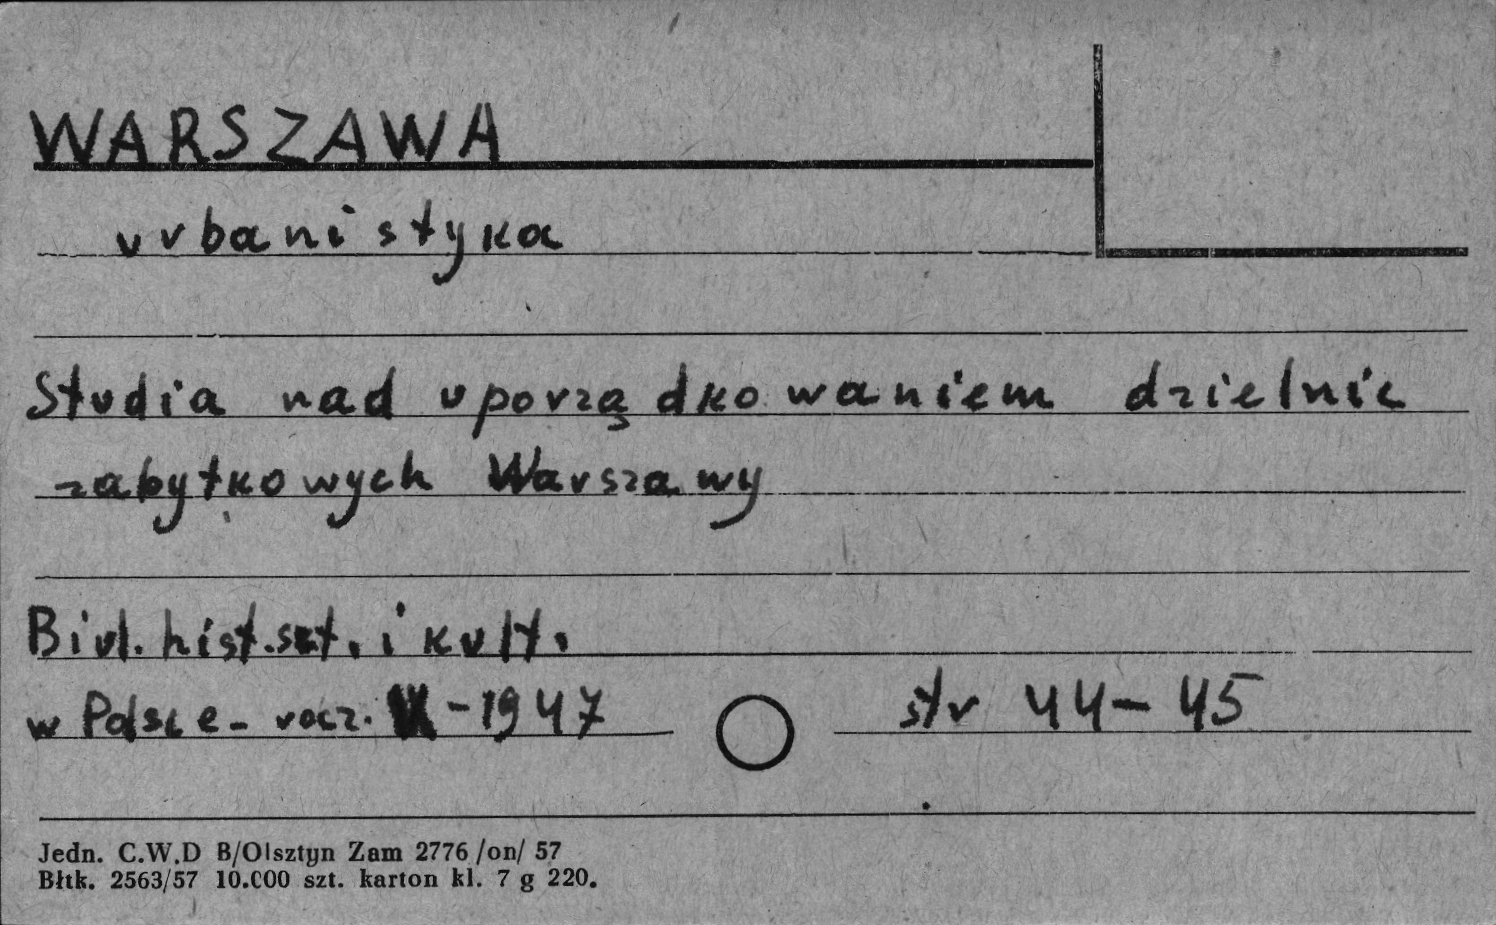 WARSZAWA
urbanistyka
Studia nad uporządkowaniem dzielnic
zabytkowych Warszawy
Biul. hist. szt. i kult.
w Polsce - rocz. - 1947 str 44-45
Jedn. C.W.D B/Olsztyn Zam 2776 /on/ 57
Błtk. 2563/57 10.000 szt. karton kl. 7 g 220.